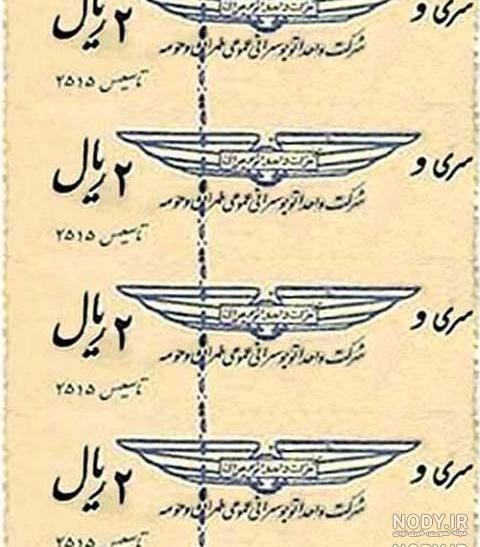 سری و
۲ ریال
شرکت واحد اتوبوسرانی عمومی طهران و حومه
تاسیس ۲۵۱۵
سری و
۲ ریال
شرکت واحد اتوبوسرانی عمومی طهران و حومه
تاسیس ۲۵۱۵
سری و
۲ ریال
شرکت واحد اتوبوسرانی عمومی طهران و حومه
تاسیس ۲۵۱۵
سری و
۲ ریال
شرکت واحد اتوبوسرانی عمومی طهران و حومه
تاسیس ۲۵۱۵
NODY.IR